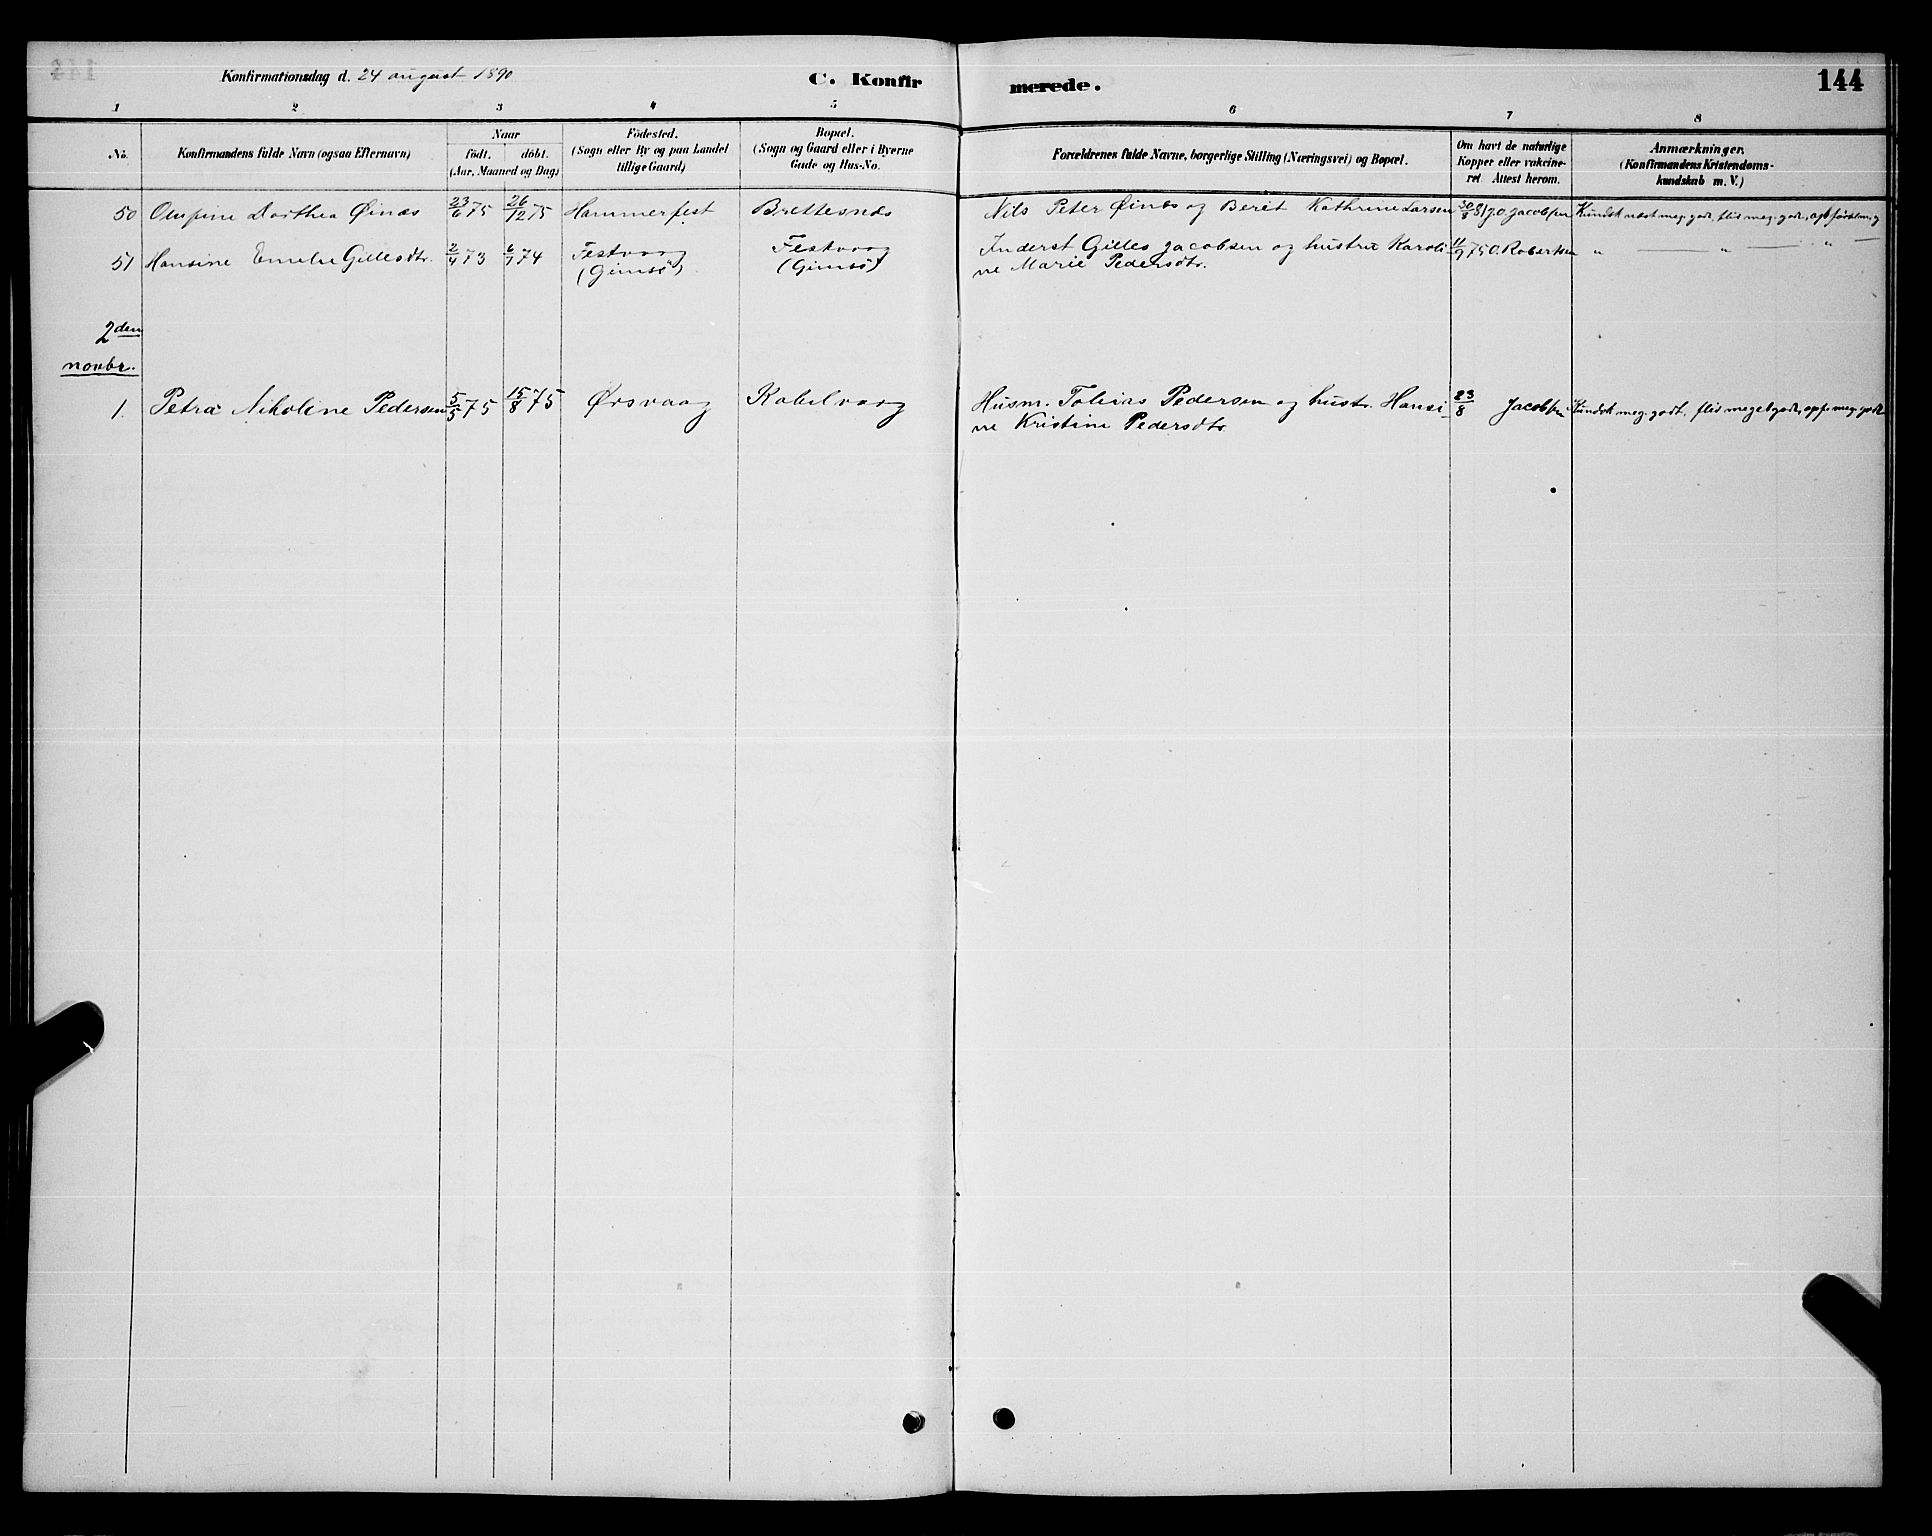 Konfirmationsdag d. 24 august 1890
C. Konfirmerede.
144
1 2 3 4 5 6 7 8
No.
Konfirmandens fulde Navn (ogsaa Efternavn)
Naar
födt. döbt.
(Aar, Maaned og Dag)
Födested.
(Sogn eller By og paa Landet
tillige Gaard)
Bopæl.
(Sogn og Gaard eller i Byerne
Gade og Hus-No.
Forældrenes fulde Navne, borgerlige Stilling (Næringsvei) og Bopæl.
Om havt de naturlige
Kopper eller vakcine-
ret Attest herom.
Anmærkninger.
(Konfirmandens Kristendoms-
kundskab m. V.)
50 Dorthea Øinæs 23/6 75 26/12 75 Hammerfest Brettesnæs Nils Peter Øinæs og Berit Kathrine Larsen 30/8 81 J.O. Jacobsen Kundsk næst meg. godt, flid meg. godt,
51 Hansine Emelie Gillesdtr. 2/4 73 6/7 74 Festvaag Festvaag Inderst Gilles Jacobsen og hustru Karoli- 11/9 75 O. Robertsen " — " — " —
(Gimsö) (Gimsö) ne Marie Pedersdtr.
2den
novbr.
1. Petra Nikoline Pedersen 5/5 75 15/8 75 Ørsvaag Kabelvaag Husm. Tobias Pedersen og hustr. Hansi- 23/8 Jacobsen Kundsk meg. godt, flid meget godt, opf. meg. godt
ne Kristine Pedersdtr.